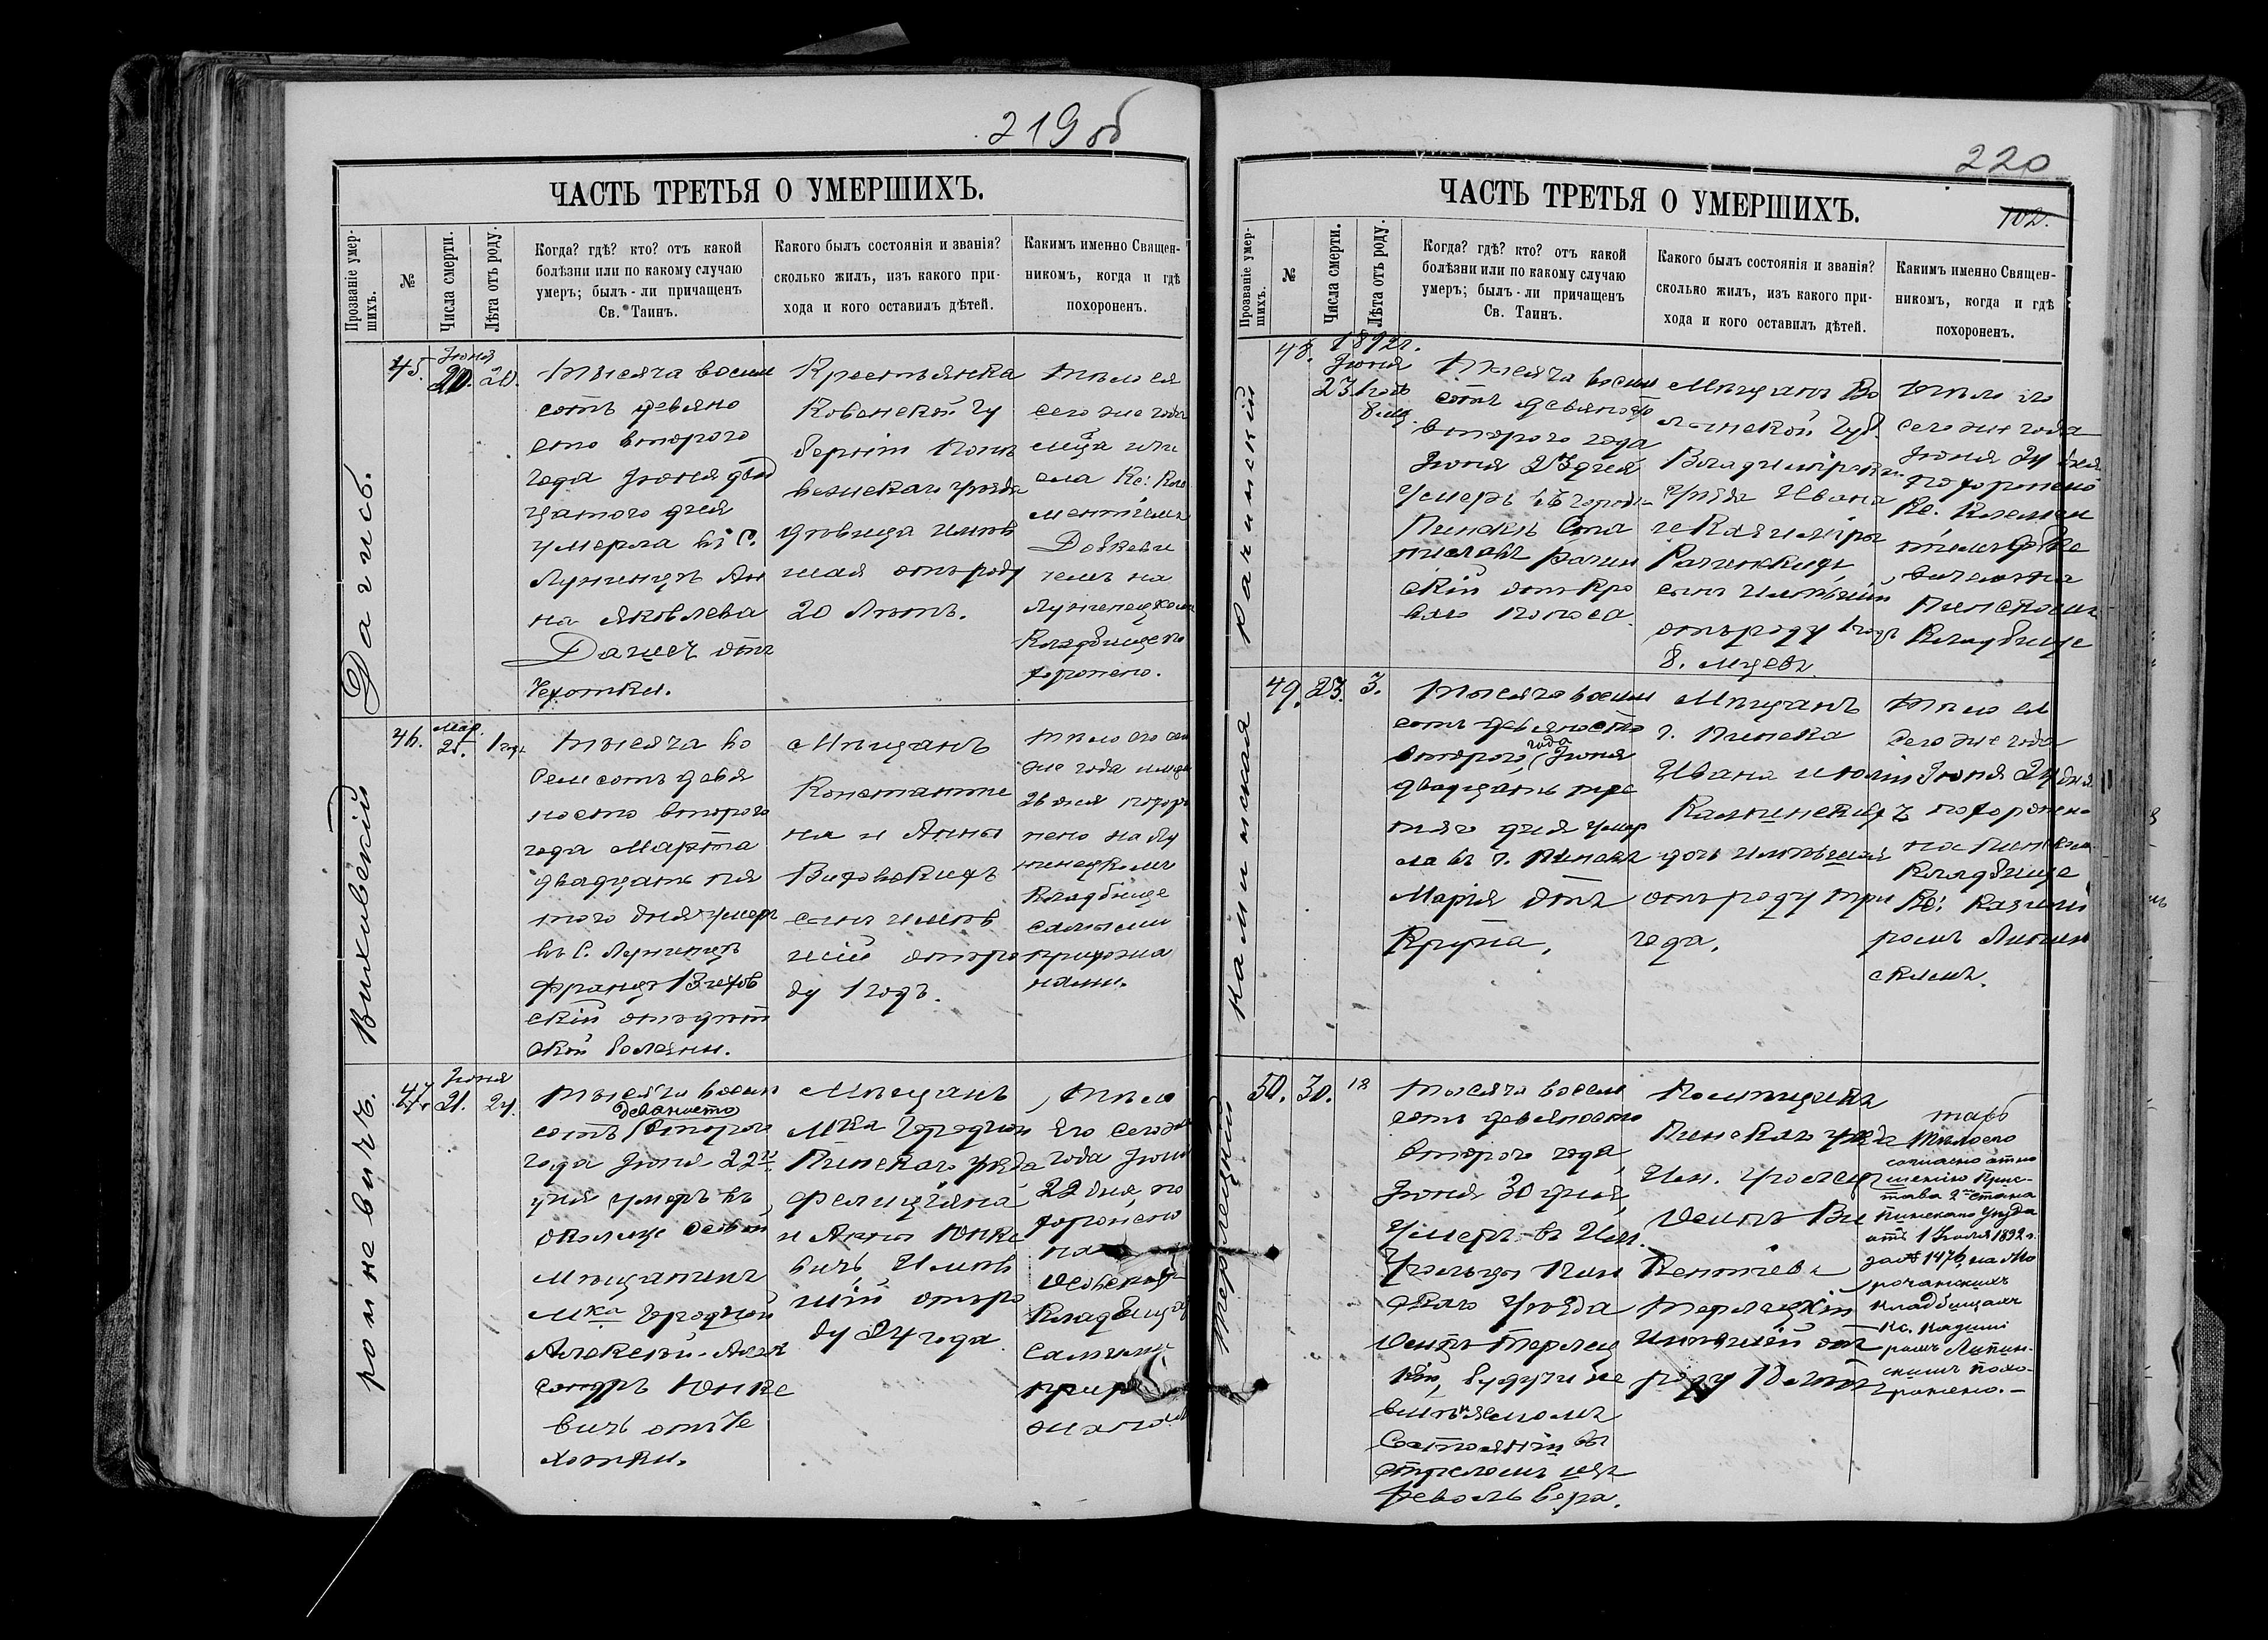 219 об
ЧАСТЬ ТРЕТЬЯ О УМЕРШИХЪ.
Прозваніе умер-
шихъ.
№
Числа смерти.
Лѣта отъ роду.
Когда? гдѣ? кто? отъ какой
болѣзни или по какому случаю
умеръ; былъ-ли причащенъ
Св. Таинъ.
Какого былъ состоянія и званія?
сколько жилъ, изъ какого при-
хода и кого оставилъ дѣтей.
Какимъ именно Священ-
никомъ, когда и гдѣ
похороненъ.
45.
Іюня
20.
20.
Тысяча восем
сотъ девяно
сто второго
года Іюня два
цатого дня
умерла въ с.
Лунинцѣ Ан
на Яковлева
отъ
Чехотки.
Крестьянка
Ковенской гу
берніи Поне
вежскаго уѣзда
дѣвица имѣв
шая отъ роду
20 лѣтъ.
Тѣло ея
сего же года
мца и чи
сла Кс: Кле
ментіемъ
на
Лунинецком
Кладбище по
хоронено.
46.
Мар.
25.
1 годъ
Виховскій
Тысяча во
семсотъ девя
носто второго
года Марта
двадцать пя
того дня умеръ
въ с. Лунинцѣ
Францъ Виховскій
отъ дѣт
ской болезни.
Мѣщанъ
Константи
на и Анны
Виховскихъ
сынъ имѣв
шій отъ ро
ду 1 годъ.
Тѣло его сего
же года и мца
26 дня похоро
нено на Лу
нинецкомъ
Кладбище
самыми
прихожа
нами.
47.
Іюня
21.
24.
Тысяча восем
девяносто
сотъ второго
года Іюня 22
дня умеръ въ
околице Осовой
Мѣщанинъ
Мка Городной
Алексѣй-Алек
сандръ Юнке
вичъ отъ Че
хотки.
Мѣщанъ
Мка Городной
Пинскаго уѣзда
Фелиціяна
и Анны Юнке
вичъ, имѣв
шій отъ ро
ду 24 года
Тѣло
его сего
года Іюня
22 дня, по
хоронено
на
Осовском
Кладбище
самыми
прихо
жанами
220
102.
ЧАСТЬ ТРЕТЬЯ О УМЕРШИХЪ.
Прозваніе умер-
шихъ.
№
Числа смерти.
Лѣта отъ роду.
Когда? гдѣ? кто? отъ какой
болѣзни или по какому случаю
умеръ; былъ-ли причащенъ
Св. Таинъ.
Какого былъ состоянія и званія?
сколько жилъ, изъ какого при-
хода и кого оставилъ дѣтей.
Какимъ именно Священ-
никомъ, когда и гдѣ
похороненъ.
48.
1892г.
Іюня
23
1 годъ
8 мц.
Рачинскій
Тысяча восем
сотъ девяносто
второго года
Іюня 23 дня
умеръ въ городе
Пинскѣ Ста
ниславъ Рачин
скій отъ кро
ваго поноса.
Мѣщанъ Во
лынской Губ.
Владимірскаго
уѣзда Ивана
и Казиміры
Рачинскихъ
сынъ имѣвшій
отъ роду 1 годъ
8. мцевъ.
Тѣло его
сего же года
Іюня 24 дня
похоронено
Кс. Клемен
тіемъ
на
Пинскомъ
Кладбище
49.
23.
3.
Каминская
Тысяча восем
сотъ девяносто
второго года Іюня
двадцать тре
тяго дня умер
ла въ г. Пинскѣ
Марія отъ
Крупа.
Мѣщанъ
г. Пинска
Ивана и Юліи
Каминскихъ
дочь имѣвшая
отъ роду три
года.
Тѣло ея
сего же года
Іюня 24 дня
похоронено
на Пинском
Кладбище
Кс: Казими
ромъ Липин
скимъ.
50.
30.
18
Терлецкій
Тысяча восем
сотъ девяносто
второго года
Іюня 30 дня,
умеръ въ Им.
Пин
скаго уѣзда
Осипъ Терлец
кій, будучи не
вмѣняемомъ
Состояніи вы
стреломъ изъ
револьвера.
Помѣщика
Пинскаго уѣзда
Им.
Осипъ Ви
кентіевъ
Терлецкій
имѣвшій отъ
роду 18 лѣтъ
Тѣло его
согласно отно
шенію Прис-
тава 2го стана
Пинскаго уѣзда
отъ 1 Іюля 1892 г.
за № 1476, на Мо
рочанскихъ
кладбищахъ
Кс. Казими
ромъ Липин-
скимъ похо-
ронено.